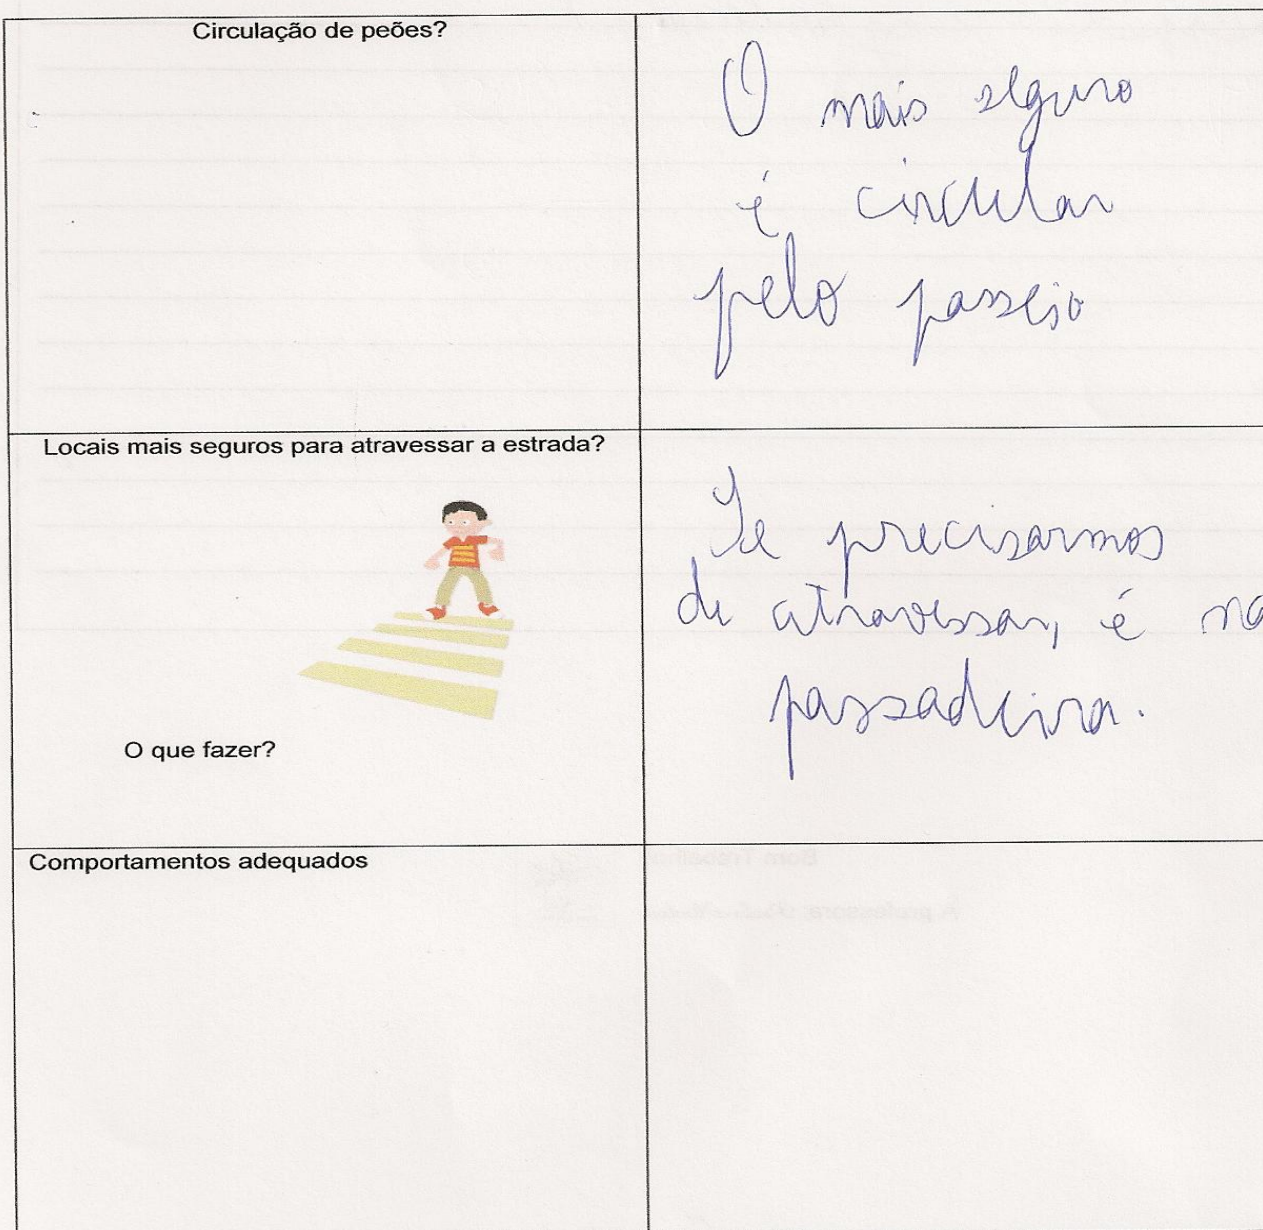 Circulação de peões?
O mais seguro
é circular
pelo passeio
Locais mais seguros para atravessar a estrada?
Se precisarmos
de atravessar, é na
passadeira.
O que fazer?
Comportamentos adequados